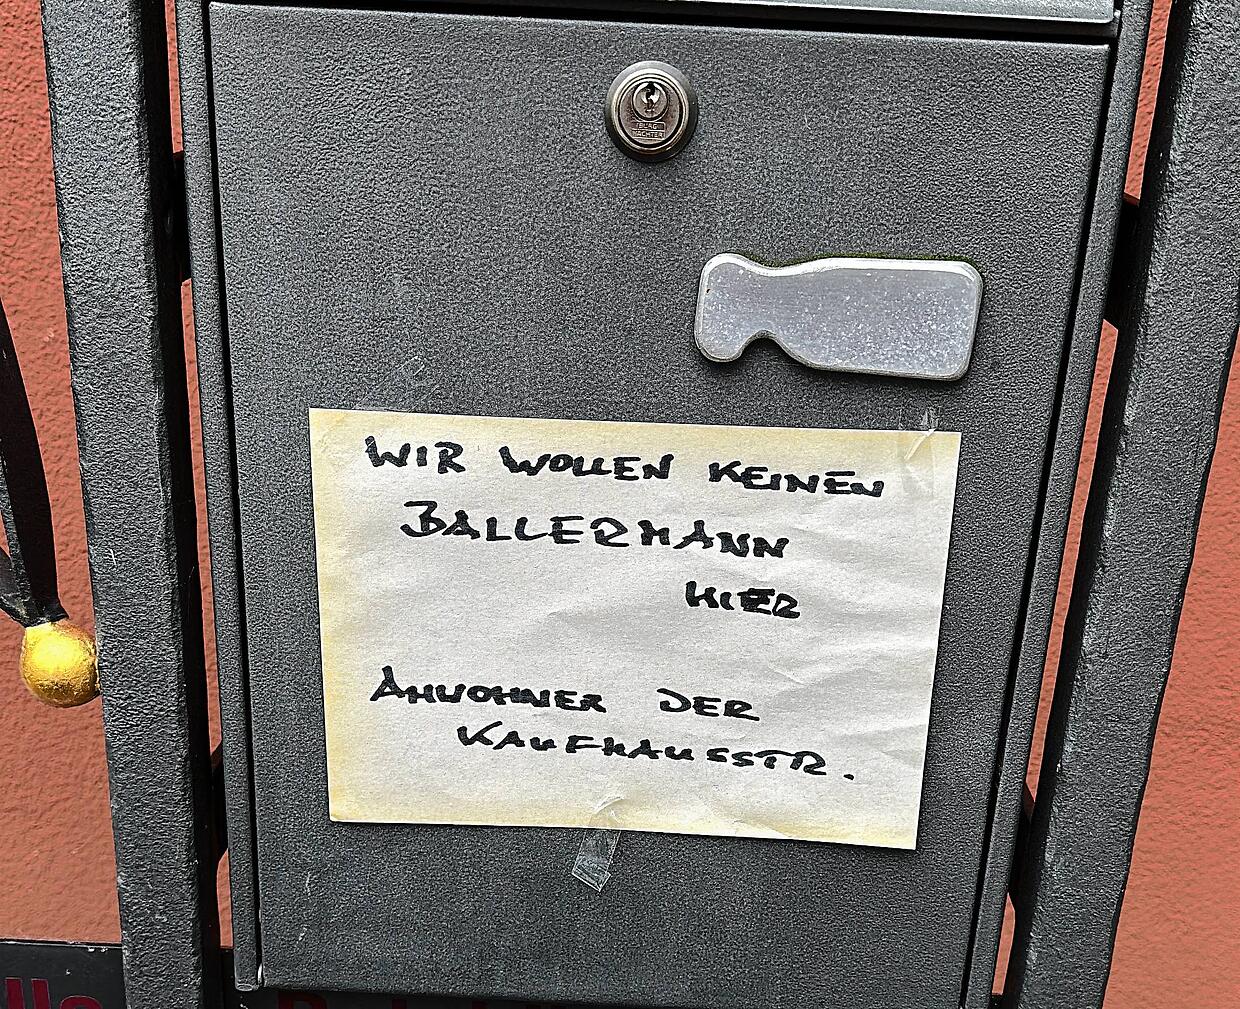 WIR WOLLEN KEINEN
BALLERMANN
HIER
ANWOHNER DER
KAUFHAUSSTR.